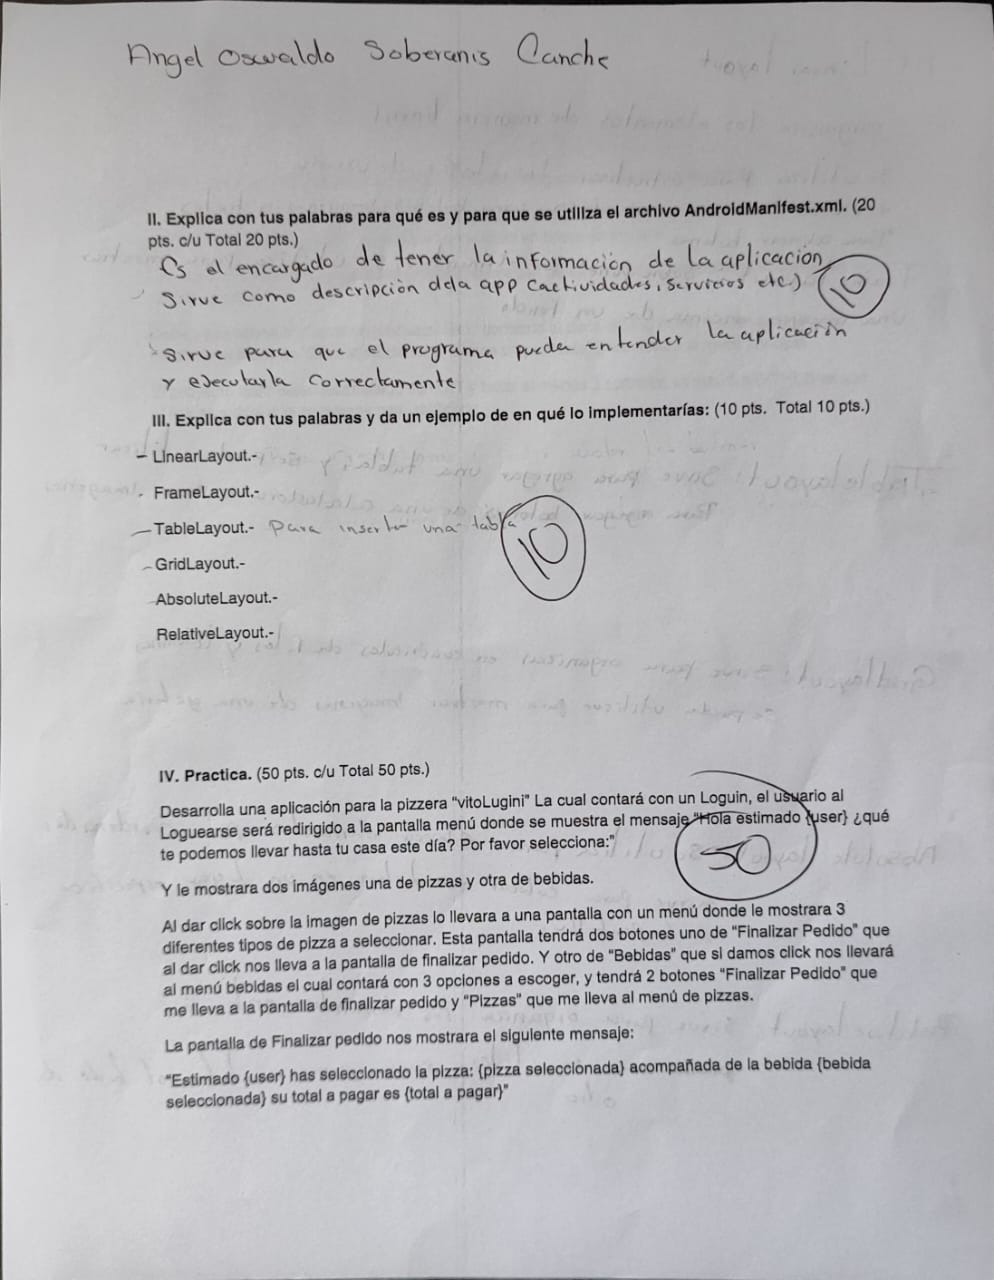 Angel Oswaldo Soberanis Canche
II. Explica con tus palabras para qué es y para que se utiliza el archivo AndroidManifest.xml. (20
pts. c/u Total 20 pts.)
Es el encargado de tener la información de la aplicación
Sirve como descripción dela app (actividades, servicios etc.)
10
Sirve para que el programa pueda entender la aplicación
y ejecutarla correctamente
III. Explica con tus palabras y da un ejemplo de en qué lo implementarías: (10 pts. Total 10 pts.)
- LinearLayout.-
FrameLayout.-
TableLayout.- Para insertar una tabla
10
GridLayout.-
AbsoluteLayout.-
RelativeLayout.-
IV. Practica. (50 pts. c/u Total 50 pts.)
Desarrolla una aplicación para la pizzera "vitoLugini" La cual contará con un Loguin, el usuario al
Loguearse será redirigido a la pantalla menú donde se muestra el mensaje "Hola estimado {user} ¿qué
te podemos llevar hasta tu casa este día? Por favor selecciona:"
50
Y le mostrara dos imágenes una de pizzas y otra de bebidas.
Al dar click sobre la imagen de pizzas lo llevara a una pantalla con un menú donde le mostrara 3
diferentes tipos de pizza a seleccionar. Esta pantalla tendrá dos botones uno de "Finalizar Pedido" que
al dar click nos lleva a la pantalla de finalizar pedido. Y otro de "Bebidas" que si damos click nos llevará
al menú bebidas el cual contará con 3 opciones a escoger, y tendrá 2 botones "Finalizar Pedido" que
me lleva a la pantalla de finalizar pedido y "Pizzas" que me lleva al menú de pizzas.
La pantalla de Finalizar pedido nos mostrara el siguiente mensaje:
"Estimado {user} has seleccionado la pizza: {pizza seleccionada} acompañada de la bebida {bebida
seleccionada} su total a pagar es {total a pagar}"